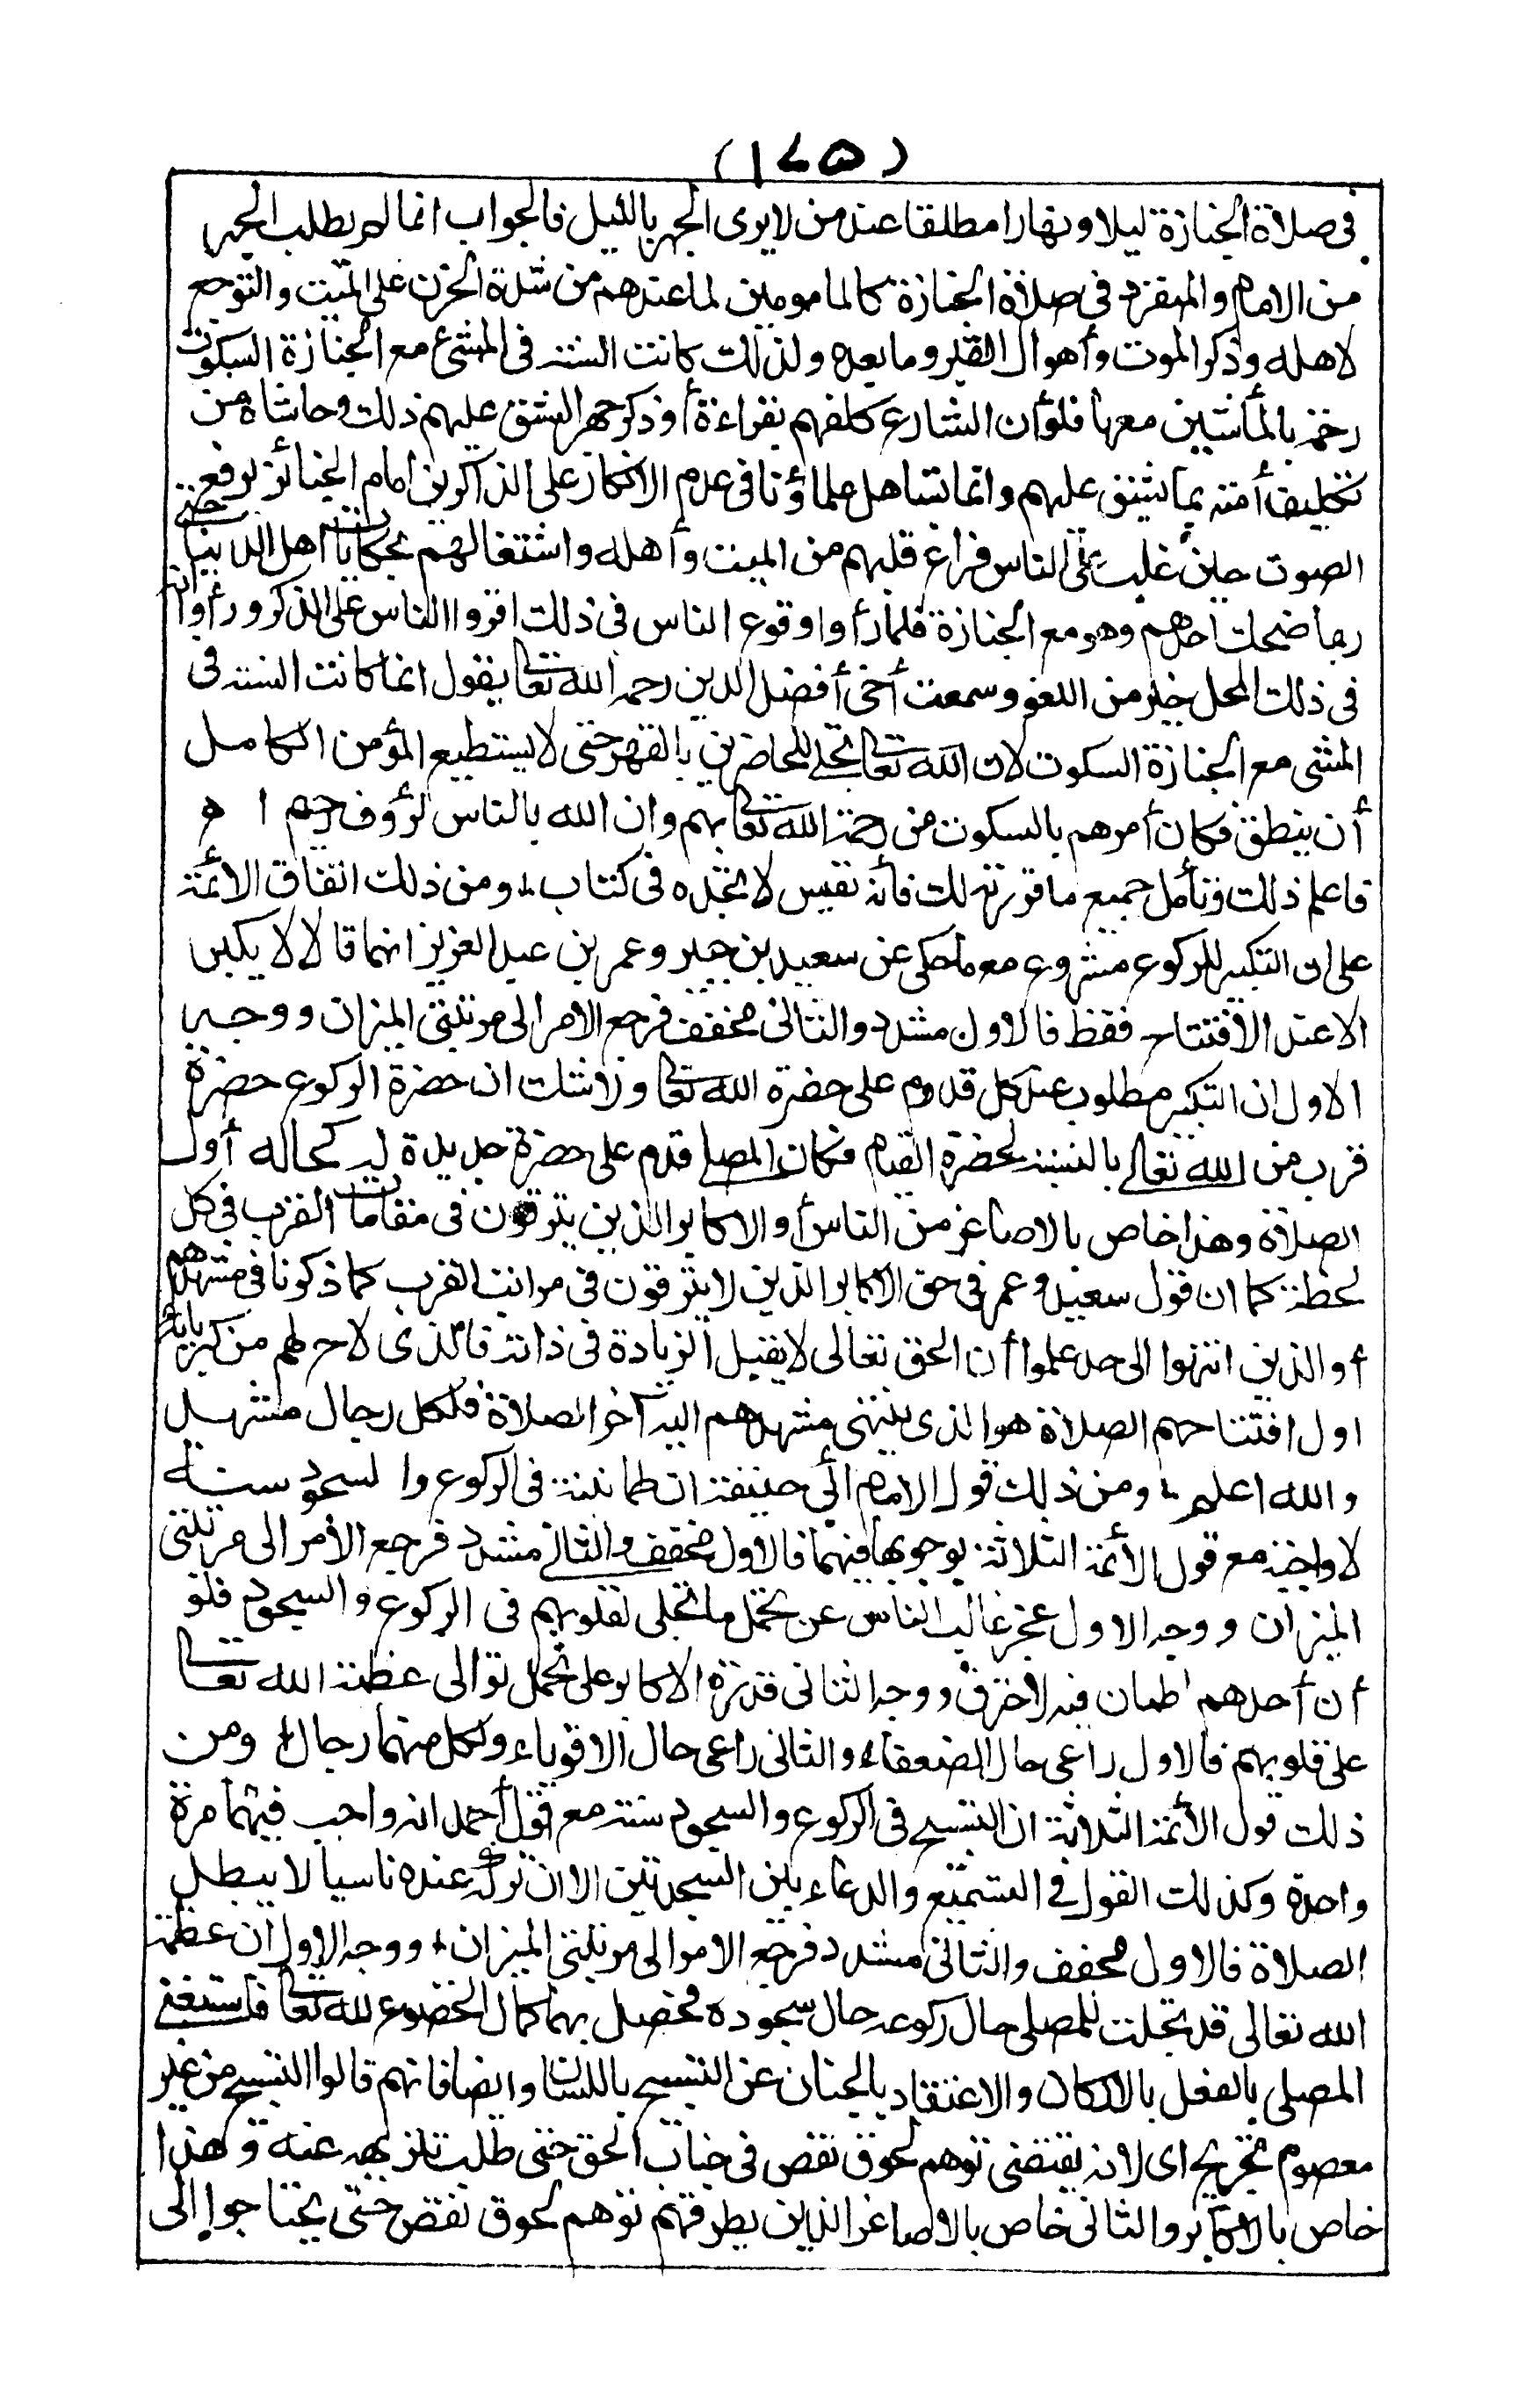 (١٧٥)
فى صلاة الجنازة ليلا ونهارا مطلقا عند من لا يرى الجهر بالليل فالجواب انما لم يطلب الجهر
من الامام والمنفرد فى صلاة الجنازة كالمامومين لما عندهم من شدة الحزن على الميت والتوجع
لاهله وذكر الموت وأهوال القبر وما بعده ولذلك كانت السنة فى المشى مع الجنازة السكوت
رحمة بالماشين معها فلو أن الشارع كلفهم بقراءة أو ذكر جهر الشق عليهم ذلك وحاشاه من
تكليف أمته بما يشق عليهم وانما تساهل علماؤنا فى عدم الانكار على الذاكرين امام الجنائز برفع
الصوت حين غلب على الناس فراغ قلبهم من الميت وأهله واشتغالهم بحكايات اهل الدنيا حتى
ربما ضحك احدهم وهو مع الجنازة فلما رأوا وقوع الناس فى ذلك اقروا الناس على الذكر ورأوا انه
فى ذلك المحل خير من اللغو وسمعت أخى أفضل الدين رحمه الله تعالى يقول انما كانت السنة فى
المشى مع الجنازة السكوت لان الله تعالى تجلى للحاضرين بالقهر حتى لا يستطيع المؤمن الكامل
أن ينطق فكان أمرهم بالسكوت من رحمة الله تعالى بهم وان الله بالناس لرؤف رحيم اه
فاعلم ذلك وتأمل جميع ما قررته لك فأنه نفيس لا تجده فى كتاب ومن ذلك اتفاق الائمة
على ان التكبير للركوع مشروع مع ما حكى عن سعيد بن جبير وعمر بن عبد العزيز انهما قالا لا يكبر
الا عند الافتتاح فقط فالاول مشدد والثانى مخفف فرجع الامر الى مرتبتى الميزان ووجه
الاول ان التكبير مطلوب عند كل قدوم على حضرة الله تعالى ولا شك ان حضرة الركوع حضرة
قرب من الله تعالى بالنسبة لحضرة القيام فكان المصلى قدم على حضرة جديدة ليه كحاله أول
الصلاة وهذا خاص بالاصاغر من الناس أو الاكابر الذين يترقون فى مقامات القرب فى كل
لحظة كما ان قول سعيد وعمر فى حق الاكابر الذين لا يترقون فى مراتب القرب كما ذكرنا فى مشهدهم
أو الذين انتهوا الى حد علموا أن الحق تعالى لا يقبل الزيادة فى ذاته فالذى لاح لهم من كبريائه
اول افتتاحهم الصلاة هو الذى ينتهى مشهدهم اليه آخر الصلاة فلكل رجال مشهد
والله اعلم ومن ذلك قول الامام أبى حنيفة ان طمانينة فى الركوع والسجود سنة
لا واجبة مع قول الأئمة الثلاثة بوجوبها فيهما فالاول مخفف والثانى مشدد فرجع الأمر الى مرتبتى
الميزان ووجه الاول عجز غالب الناس عن تحمل ما تجلى لقلوبهم فى الركوع والسجود فلو
أن أحدهم اطمان فيه لاحترق ووجه الثانى قدرة الاكابر على تحمل توالى عظمة الله تعالى
على قلوبهم فالاول راعى حال الضعفاء والثانى راعى حال الاقوياء ولكل منهما رجال ومن
ذلك قول الأئمة الثلاثة ان التسبيح فى الركوع والسجود سنة مع قول أحمد انه واجب فيهما مرة
واحدة وكذلك القول فى التسميع والدعاء بين السجدتين الا ان تركه عنده ناسيا لا يبطل
الصلاة فالاول مخفف والثانى مشدد فرجع الامر الى مرتبتى الميزان ووجه الاول ان عظمة
الله تعالى قد تجلت للمصلى حال ركوعه حال سجوده فحصل بهما كمال الخضوع لله تعالى فاستغنى
المصلى بالفعل بالاركان والاعتقاد بالجنان عن التسبيح باللسان وايضا فانهم قالوا التسبيح من غير
معصوم تجريح اى لانه يقتضى توهم لحوق نقص فى جناب الحق حتى طلب تنزيهه عنه وهذا
خاص بالاكابر والثانى خاص بالاصاغر الذين يطرقهم توهم لحوق نقص حتى يحتاجوا الى